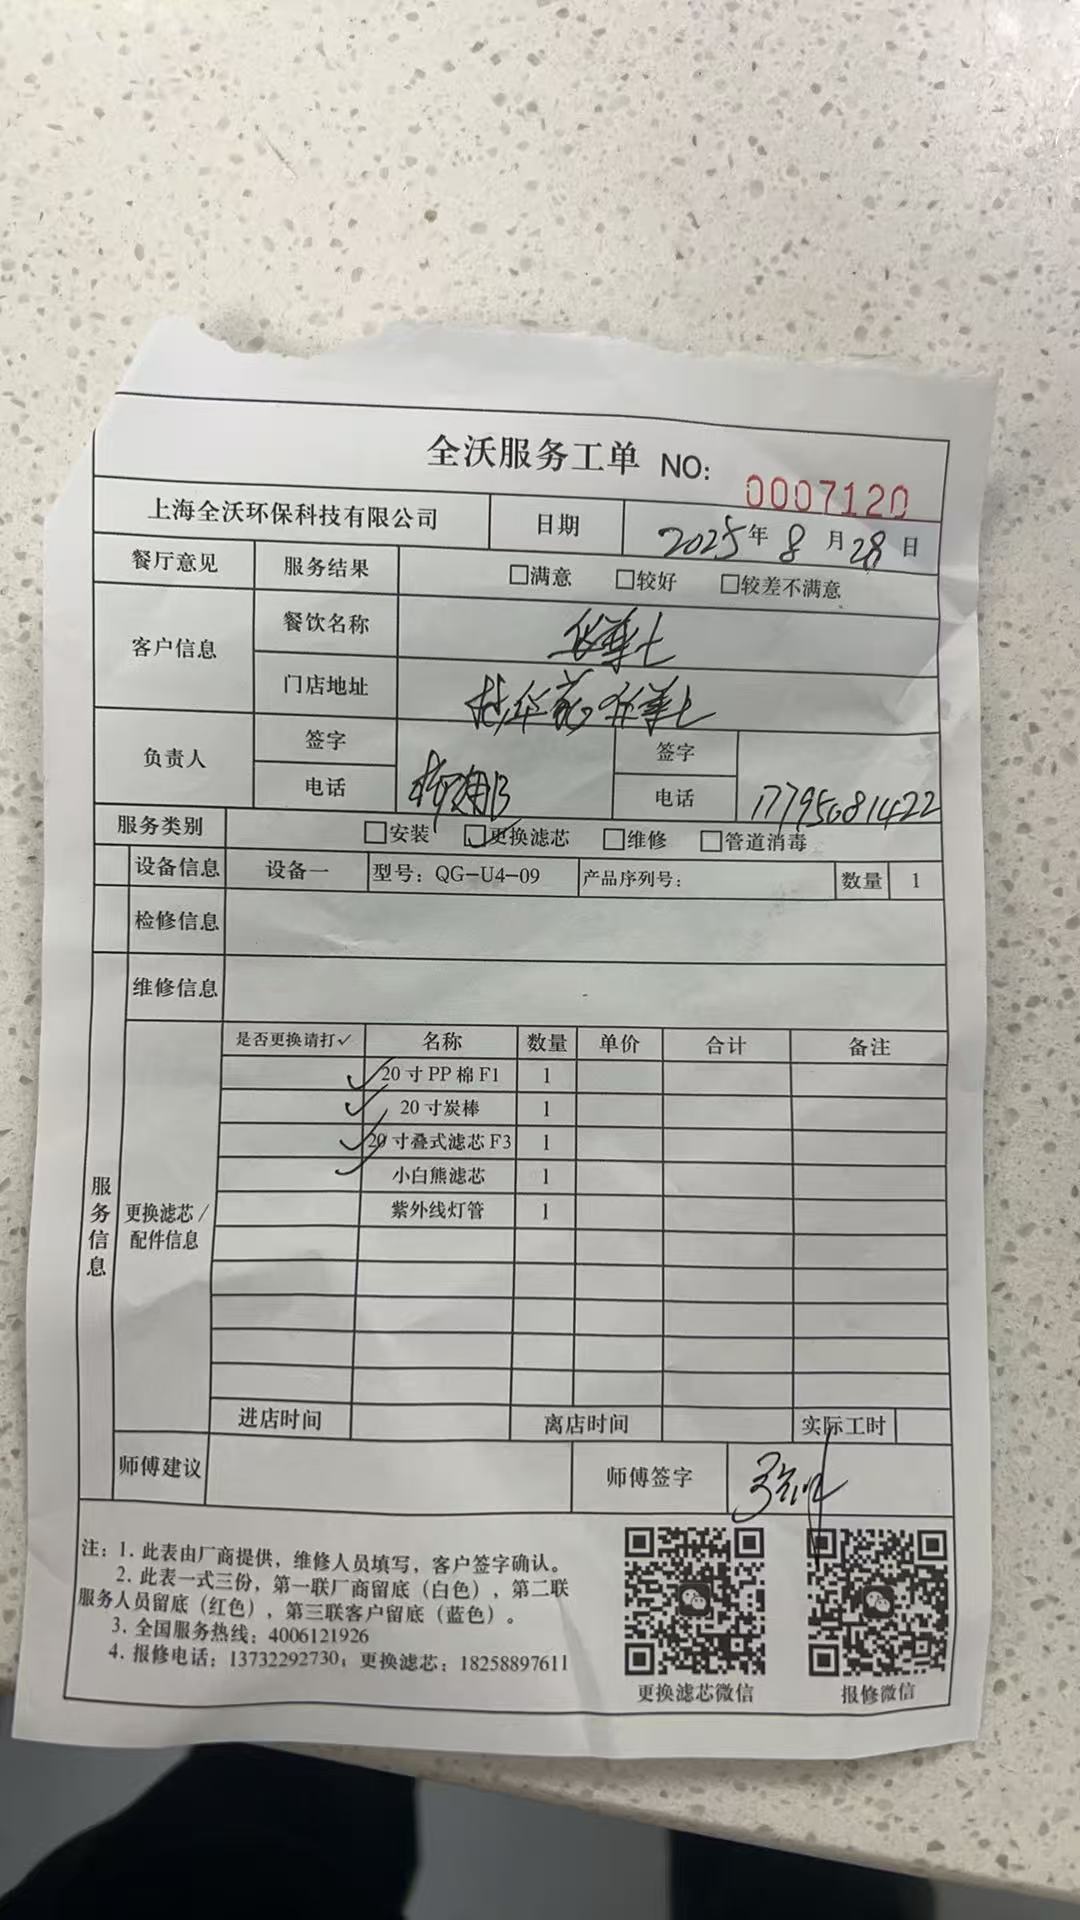 全沃服务工单 NO: 0007120
上海全沃环保科技有限公司 日期 2025年8月28日
餐厅意见 服务结果 □满意 □较好 □较差不满意
客户信息 餐饮名称 华莱士
门店地址 华莱士
负责人 签字 签字
电话 电话 17795081422
服务类别 □安装 □更换滤芯 □维修 □管道消毒
设备信息 设备一 型号: QG-U4-09 产品序列号: 数量 1
检修信息
维修信息
服务信息
更换滤芯/
配件信息
是否更换请打✓ 名称 数量 单价 合计 备注
✓ 20寸PP棉F1 1
✓ 20寸炭棒 1
✓ 20寸叠式滤芯F3 1
✓ 小白熊滤芯 1
紫外线灯管 1
进店时间 离店时间 实际工时
师傅建议 师傅签字
注: 1. 此表由厂商提供, 维修人员填写, 客户签字确认。
2. 此表一式三份, 第一联厂商留底 (白色), 第二联
服务人员留底 (红色), 第三联客户留底 (蓝色)。
3. 全国服务热线: 4006121926
4. 报修电话: 13732292730; 更换滤芯: 18258897611
更换滤芯微信 报修微信